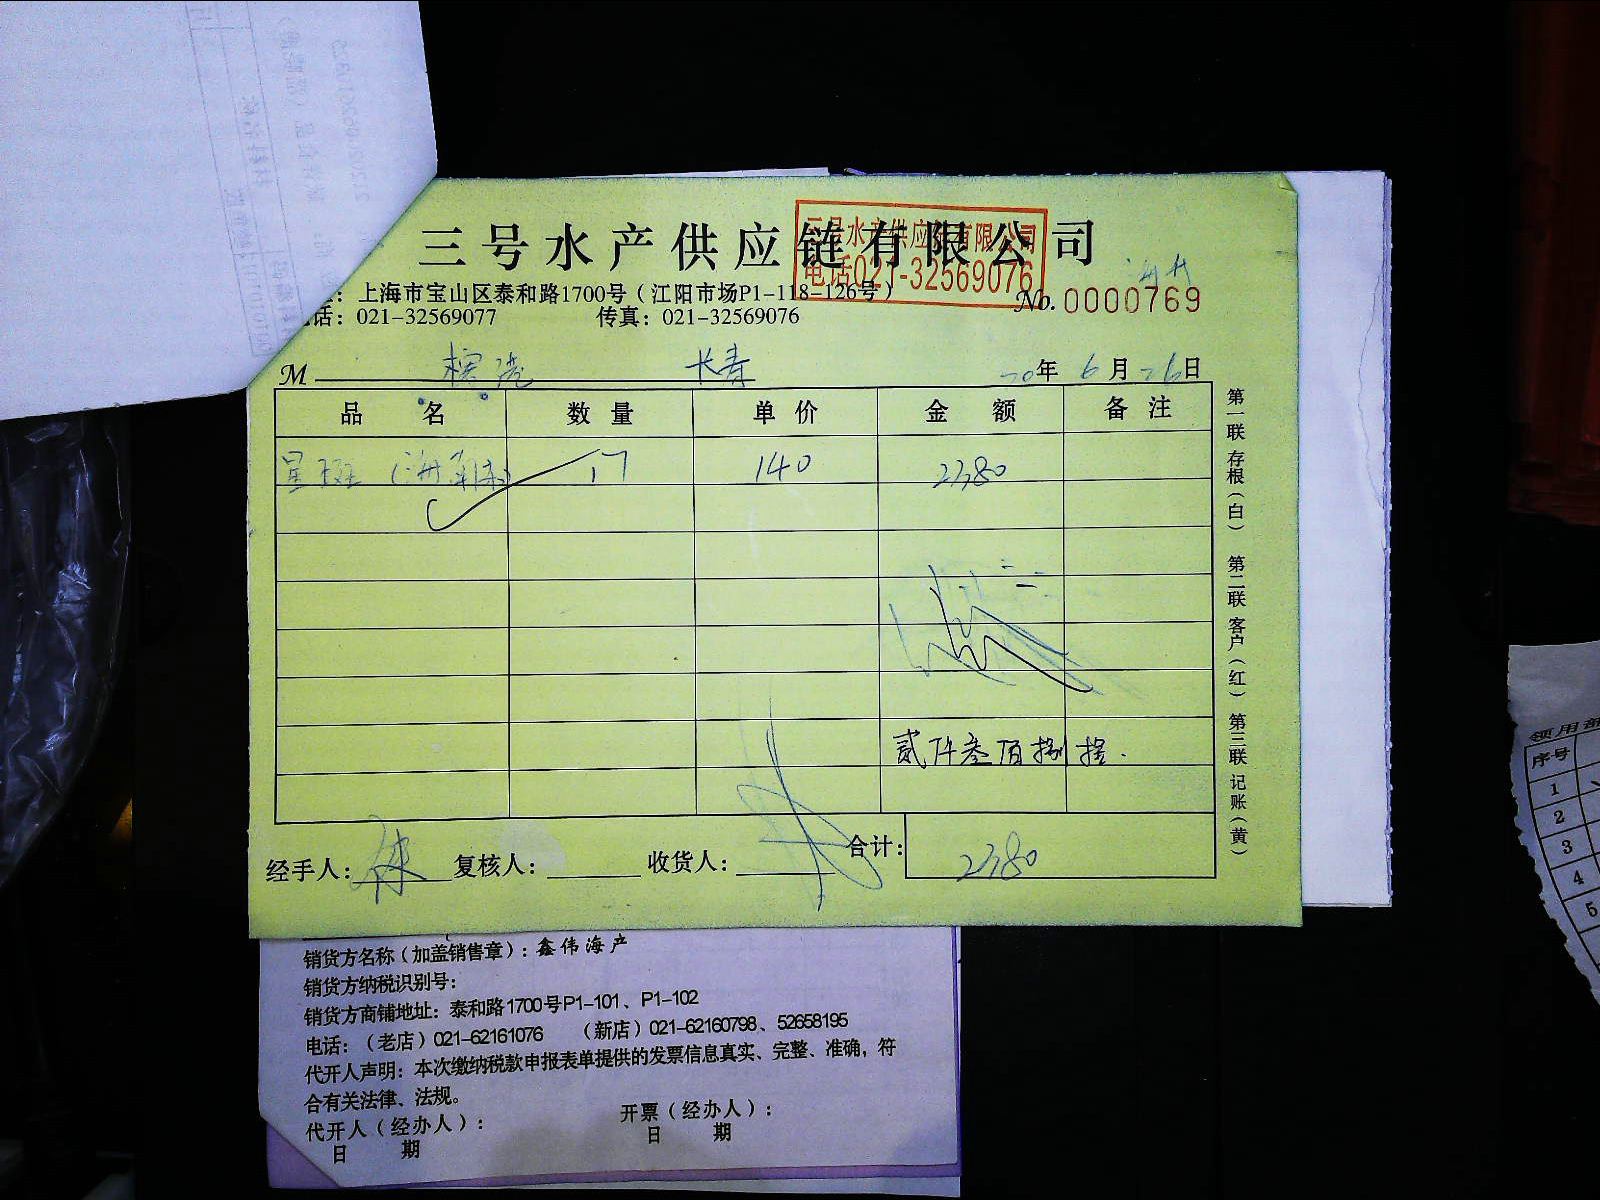 三号水产供应链有限公司
三号水产供应链有限公司
电话021-32569076
：上海市宝山区泰和路1700号（江阳市场P1-118-126号）
话：021-32569077 传真：021-32569076
No. 0000769
M 长青 20年 6月 26日
品名 数量 单价 金额 备注
星斑 17 140 2380
贰仟叁佰捌拾.
经手人： 复核人： 收货人： 合计： 2380
第一联 存根（白） 第二联 客户（红） 第三联 记账（黄）
销货方名称（加盖销售章）：鑫伟海产
销货方纳税识别号：
销货方商铺地址：泰和路1700号P1-101、P1-102
电话：（老店）021-62161076 （新店）021-62160798、52658195
代开人声明：本次缴纳税款申报表单提供的发票信息真实、完整、准确，符
合有关法律、法规。
代开人（经办人）： 开票（经办人）：
日期 日期
领用部
序号
1
2
3
4
5